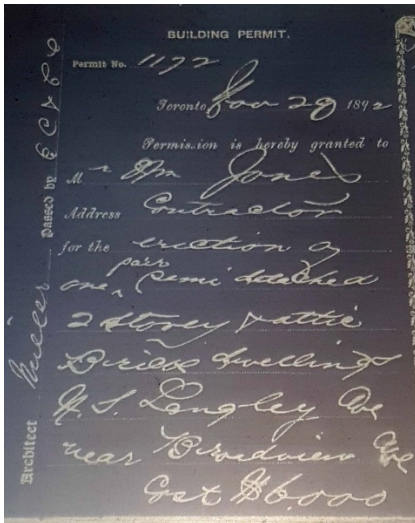 BUILDING PERMIT.
Permit No. 1172
Toronto Nov 29 1892
Permission is hereby granted to
Mr Wm Jones
Address Contractor
for the erection of
one pair Semi detached
2 Storey & attic
Brick dwellings
N. S. Langley Ave
near Broadview Ave
Cost $6,000
Passed by
Architect Miller